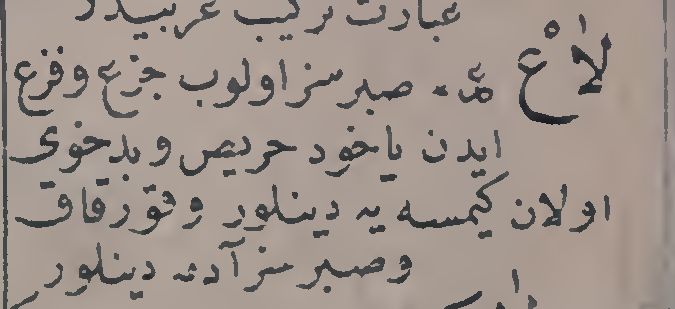 عبارت تركيب عربيدر
لاع صبرسز اولوب جزع و فزع
ايدن ياخود حريص و بدخوى
اولان كيمسه يه دينلور و قورقاق
و صبرسز آدمه دينلور